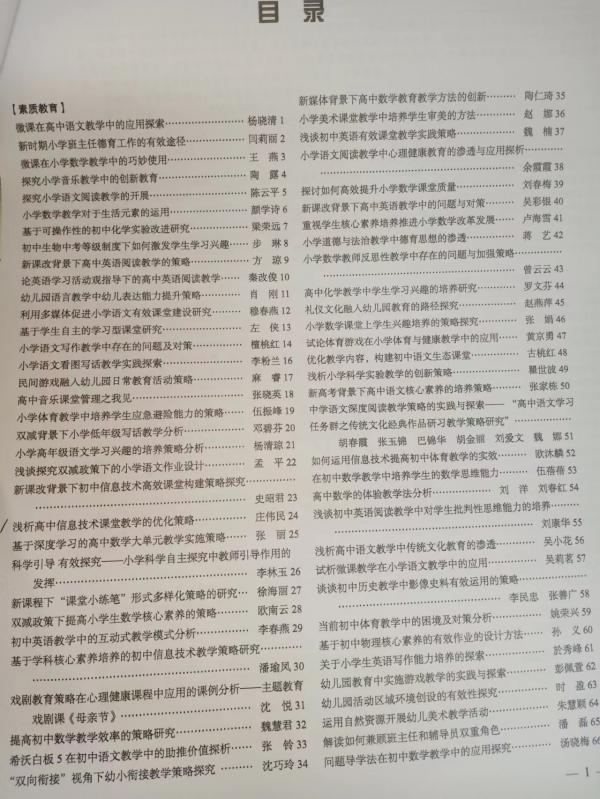 目 录
【素质教育】
微课在高中语文教学中的应用探索…………………… 杨晓清 1
新时期小学班主任德育工作的有效途径……………… 闫莉丽 2
微课在小学数学教学中的巧妙使用…………………… 王 燕 3
探究小学音乐教学中的创新教育……………………… 陶 露 4
探究小学语文阅读教学的开展………………………… 陈云平 5
小学数学教学对于生活元素的运用…………………… 颜学诗 6
基于可操作性的初中化学实验改进研究……………… 梁荣远 7
初中生物中考等级制度下如何激发学生学习兴趣…… 步 琳 8
新课改背景下高中英语阅读教学的策略……………… 方 琼 9
论英语学习活动观指导下的高中英语阅读教学……… 秦改俊 10
幼儿园语言教学中幼儿表达能力提升策略…………… 肖 刚 11
利用多媒体促进小学语文有效课堂建设研究………… 穆春燕 12
基于学生自主的学习型课堂研究……………………… 左 侠 13
小学语文写作教学中存在的问题及对策……………… 檀桃红 14
小学语文看图写话教学实践探索……………………… 李粉兰 16
民间游戏融入幼儿园日常教育活动策略……………… 麻 睿 17
高中音乐课堂管理之我见……………………………… 张晓英 18
小学体育教学中培养学生应急避险能力的策略……… 伍振峰 19
双减背景下小学低年级写话教学分析………………… 邓碧芬 20
小学高年级语文学习兴趣的培养策略分析…………… 杨清琼 21
浅谈探究双减政策下的小学语文作业设计…………… 孟 平 22
新课改背景下初中信息技术高效课堂构建策略探究……
………………………………………………………… 史昭君 23
浅析高中信息技术课堂教学的优化策略……………… 庄伟民 24
基于深度学习的高中数学大单元教学实施策略……… 张 丽 25
科学引导 有效探究——小学科学自主探究中教师引导作用的
发挥…………………………………………………… 李林玉 26
新课程下“课堂小练笔”形式多样化策略的研究… 徐海丽 27
双减政策下提高小学生数学核心素养的策略………… 欧南云 28
初中英语教学中的互动式教学模式分析……………… 李春燕 29
基于学科核心素养培养的初中信息技术教学策略研究……
………………………………………………………… 潘瑜风 30
戏剧教育策略在心理健康课程中应用的课例分析——主题教育
戏剧课《母亲节》…………………………………… 沈 悦 31
提高初中数学教学效率的策略研究…………………… 魏慧君 32
希沃白板 5 在初中语文教学中的助推价值探析……… 张 铃 33
“双向衔接”视角下幼小衔接教学策略探究………… 沈巧玲 34
新媒体背景下高中数学教育教学方法的创新………… 陶仁琦 35
小学美术课堂教学中培养学生审美的方法…………… 赵 娜 36
浅谈初中英语有效课堂教学实践策略………………… 魏 楠 37
小学语文阅读教学中心理健康教育的渗透与应用探析……
………………………………………………………… 余霞霞 38
探讨如何高效提升小学数学课堂质量………………… 刘春梅 39
新课改背景下高中英语教学中的问题与对策………… 吴彩银 40
重视学生核心素养培养推进小学数学改革发展……… 卢海雪 41
小学道德与法治教学中德育思想的渗透……………… 蒋 艺 42
小学数学教师反思性教学中存在的问题与加强策略……
………………………………………………………… 曾云云 43
高中化学教学中学生学习兴趣的培养研究…………… 罗文芬 44
礼仪文化融入幼儿园教育的路径探究………………… 赵燕萍 45
小学数学课堂上学生兴趣培养的策略探究…………… 张 娟 46
试论体育游戏在小学体育与健康教学中的应用……… 黄京勇 47
优化教学内容，构建初中语文生态课堂……………… 古桃红 48
浅析小学科学实验教学的创新策略…………………… 瞿世波 49
新高考背景下高中语文核心素养的培养策略………… 张家栋 50
中学语文深度阅读教学策略的实践与探索——“高中语文学习
任务群之传统文化经典作品研习教学策略研究”………
胡春霞 张玉锦 巴锦华 胡金丽 刘爱文 魏 娜 51
如何运用信息技术提高初中体育教学的实效………… 欧沐麟 52
在初中数学教学中培养学生的数学思维能力………… 伍蓓蓓 53
高中数学的体验教学法分析………………… 刘 洋 刘春红 54
浅谈初中英语阅读教学中对学生批判性思维能力的培养……
………………………………………………………… 刘康华 55
浅析高中语文教学中传统文化教育的渗透…………… 吴小花 56
试析微课教学在小学语文教学中的应用……………… 吴莉茗 57
谈谈初中历史教学中影像史料有效运用的策略…………
……………………………………………… 李民忠 张善广 58
当前初中体育教学中的困境及对策分析……………… 姚荣兴 59
基于初中物理核心素养的有效作业的设计方法……… 孙 义 60
关于小学生英语写作能力培养的探索………………… 於秀峰 61
幼儿园教育中实施游戏教学的实践与探索…………… 彭佩萱 62
幼儿园活动区域环境创设的有效性探究……………… 时 盈 63
运用自然资源开展幼儿美术教学活动………………… 朱慧颖 64
解读如何兼顾班主任和辅导员双重角色……………… 潘 磊 65
问题导学法在初中数学教学中的应用探究…………… 汤晓梅 66
— 1 —